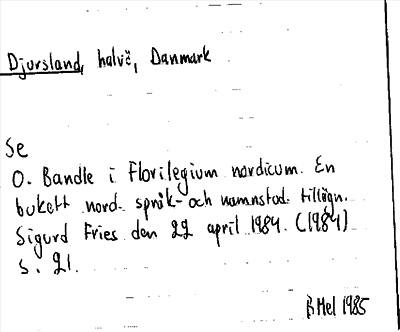 Djursland, halvö, Danmark
Se
O. Bandle i Florilegium nordicum. En
bukett nord. språk- och namnstud. tillägn.
Sigurd Fries den 22 april 1984. (1984)
s. 21.
BMel 1985